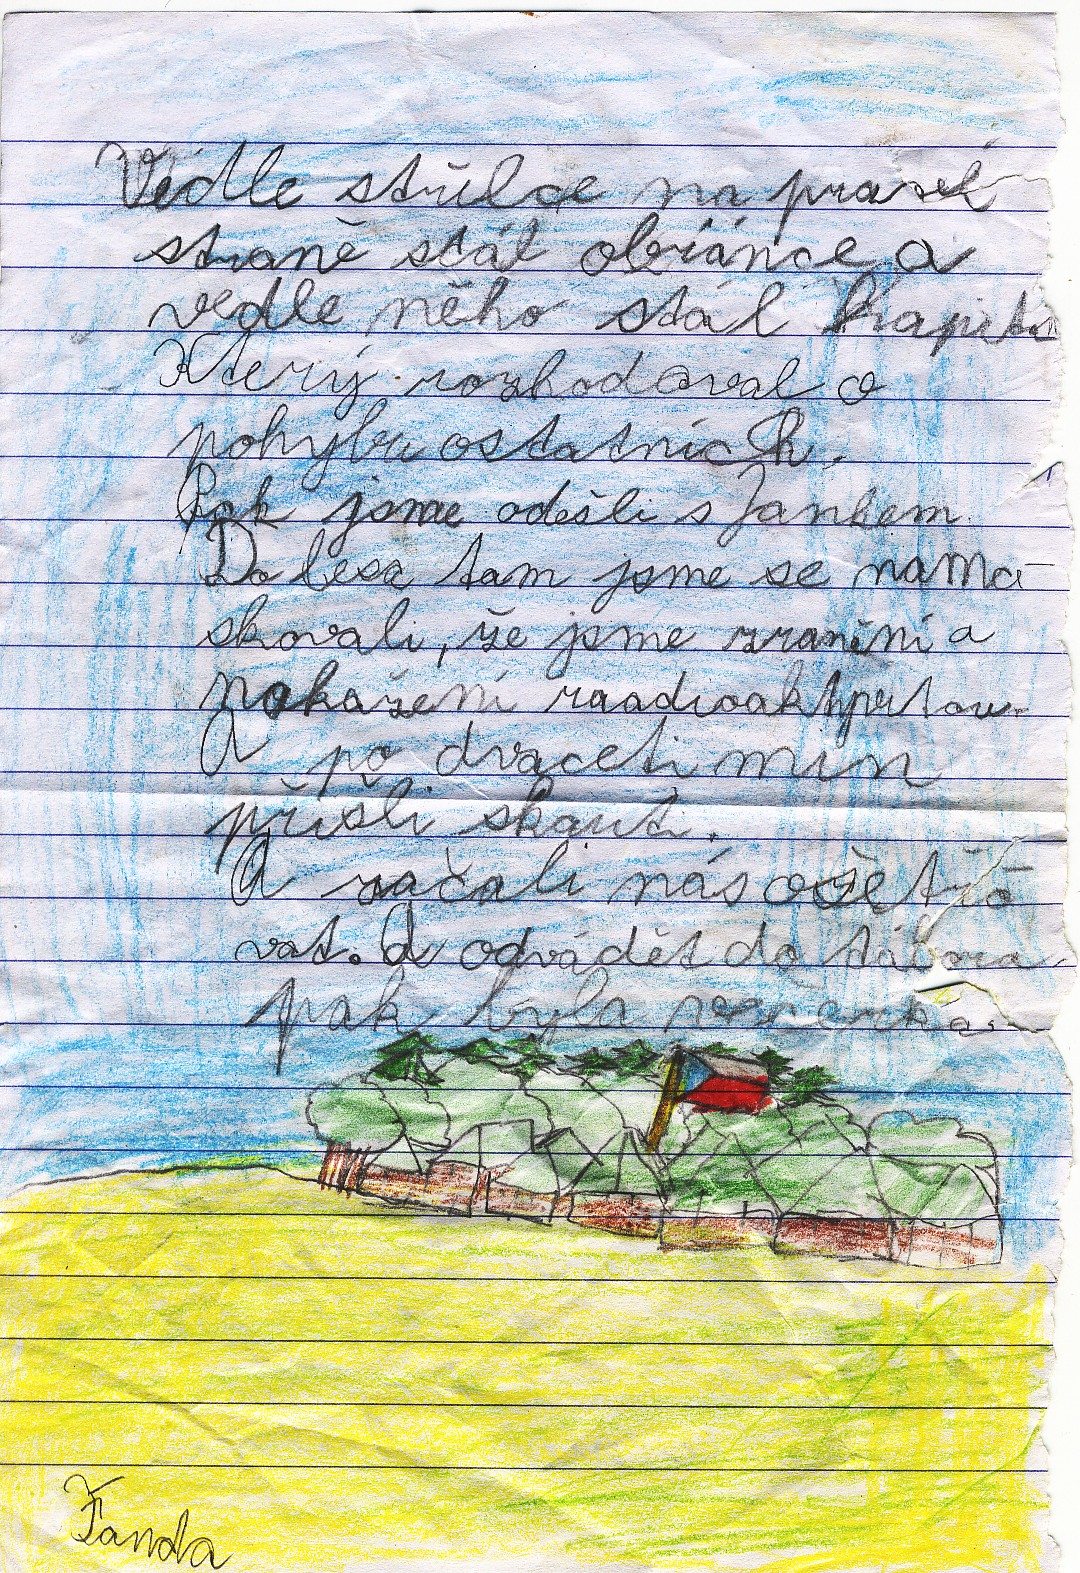 Vedle střelce na pravé
straně stál obránce a
vedle něho stál
Který rozhodoval o
pohybu ostatních.
Pak jsme odešli s Jankem
Do lesa tam jsme se nama-
skovali, že jsme zranění a
nakažení
A po dvaceti min
přišli skauti.
A začali nás ošetřo
vat. A odvádět do tábora
pak byla večerka.
Fanda